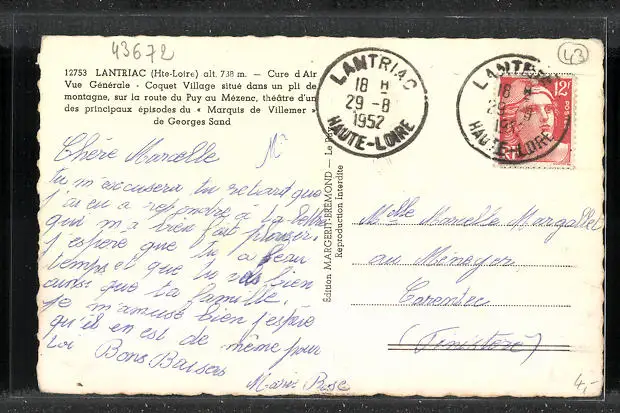 43672
43
12753 LANTRIAC (Hte-Loire) alt. 738 m. — Cure d'Air
Vue Générale - Coquet Village situé dans un pli de
montagne, sur la route du Puy au Mézenc, théâtre d'un
des principaux épisodes du « Marquis de Villemer »
de Georges Sand
LANTRIAC
18 H
29-8
1952
HAUTE-LOIRE
LANTRIAC
18 H
29-8
HAUTE-LOIRE
12F
POSTES
Chère Marcelle
tu m'excusera du retard que
j'ai eu a repondre à ta lettre
qui m'a bien fait plaisir.
J'espère que tu a beau
temps et que tu vas bien
ainsi que ta famille.
Je m'amuse bien j'espère
qu'il en est de même pour
toi Bons Baisers
Marie Rose
Édition MARGERIT-BREMOND — Le Puy
Reproduction interdite
Melle Marcelle Margallet
au Méneyer
Carentec
(Finistère)
4,-